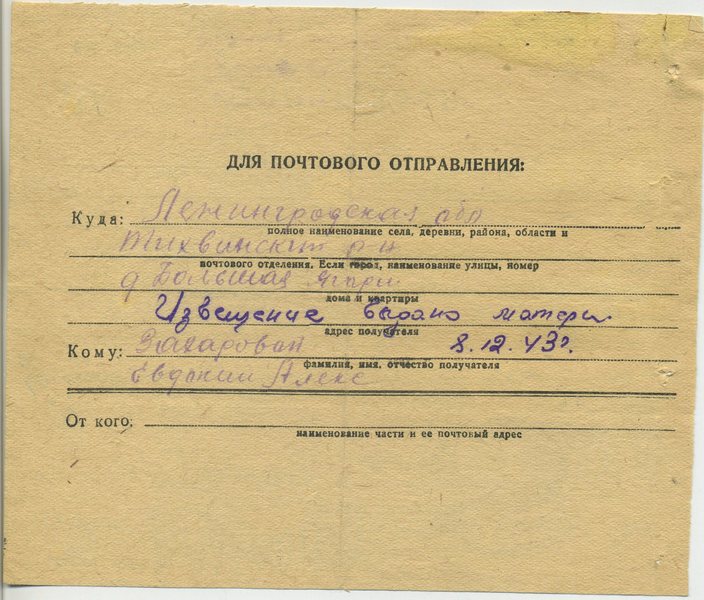 ДЛЯ ПОЧТОВОГО ОТПРАВЛЕНИЯ:
Куда: Ленинградская обл
полное наименование села, деревни, района, области и
Тихвинский р-н
почтового отделения. Если город, наименование улицы, номер
д Большая
дома и квартиры
Извещение выдано матери
адрес получателя
Кому: Захаровой 8.12.43г.
фамилия, имя, отчество получателя
Евдокии Алекс
От кого:
наименование части и ее почтовый адрес